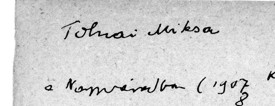 Tolnai Miksa
a Nagyváradban (1907 K
8